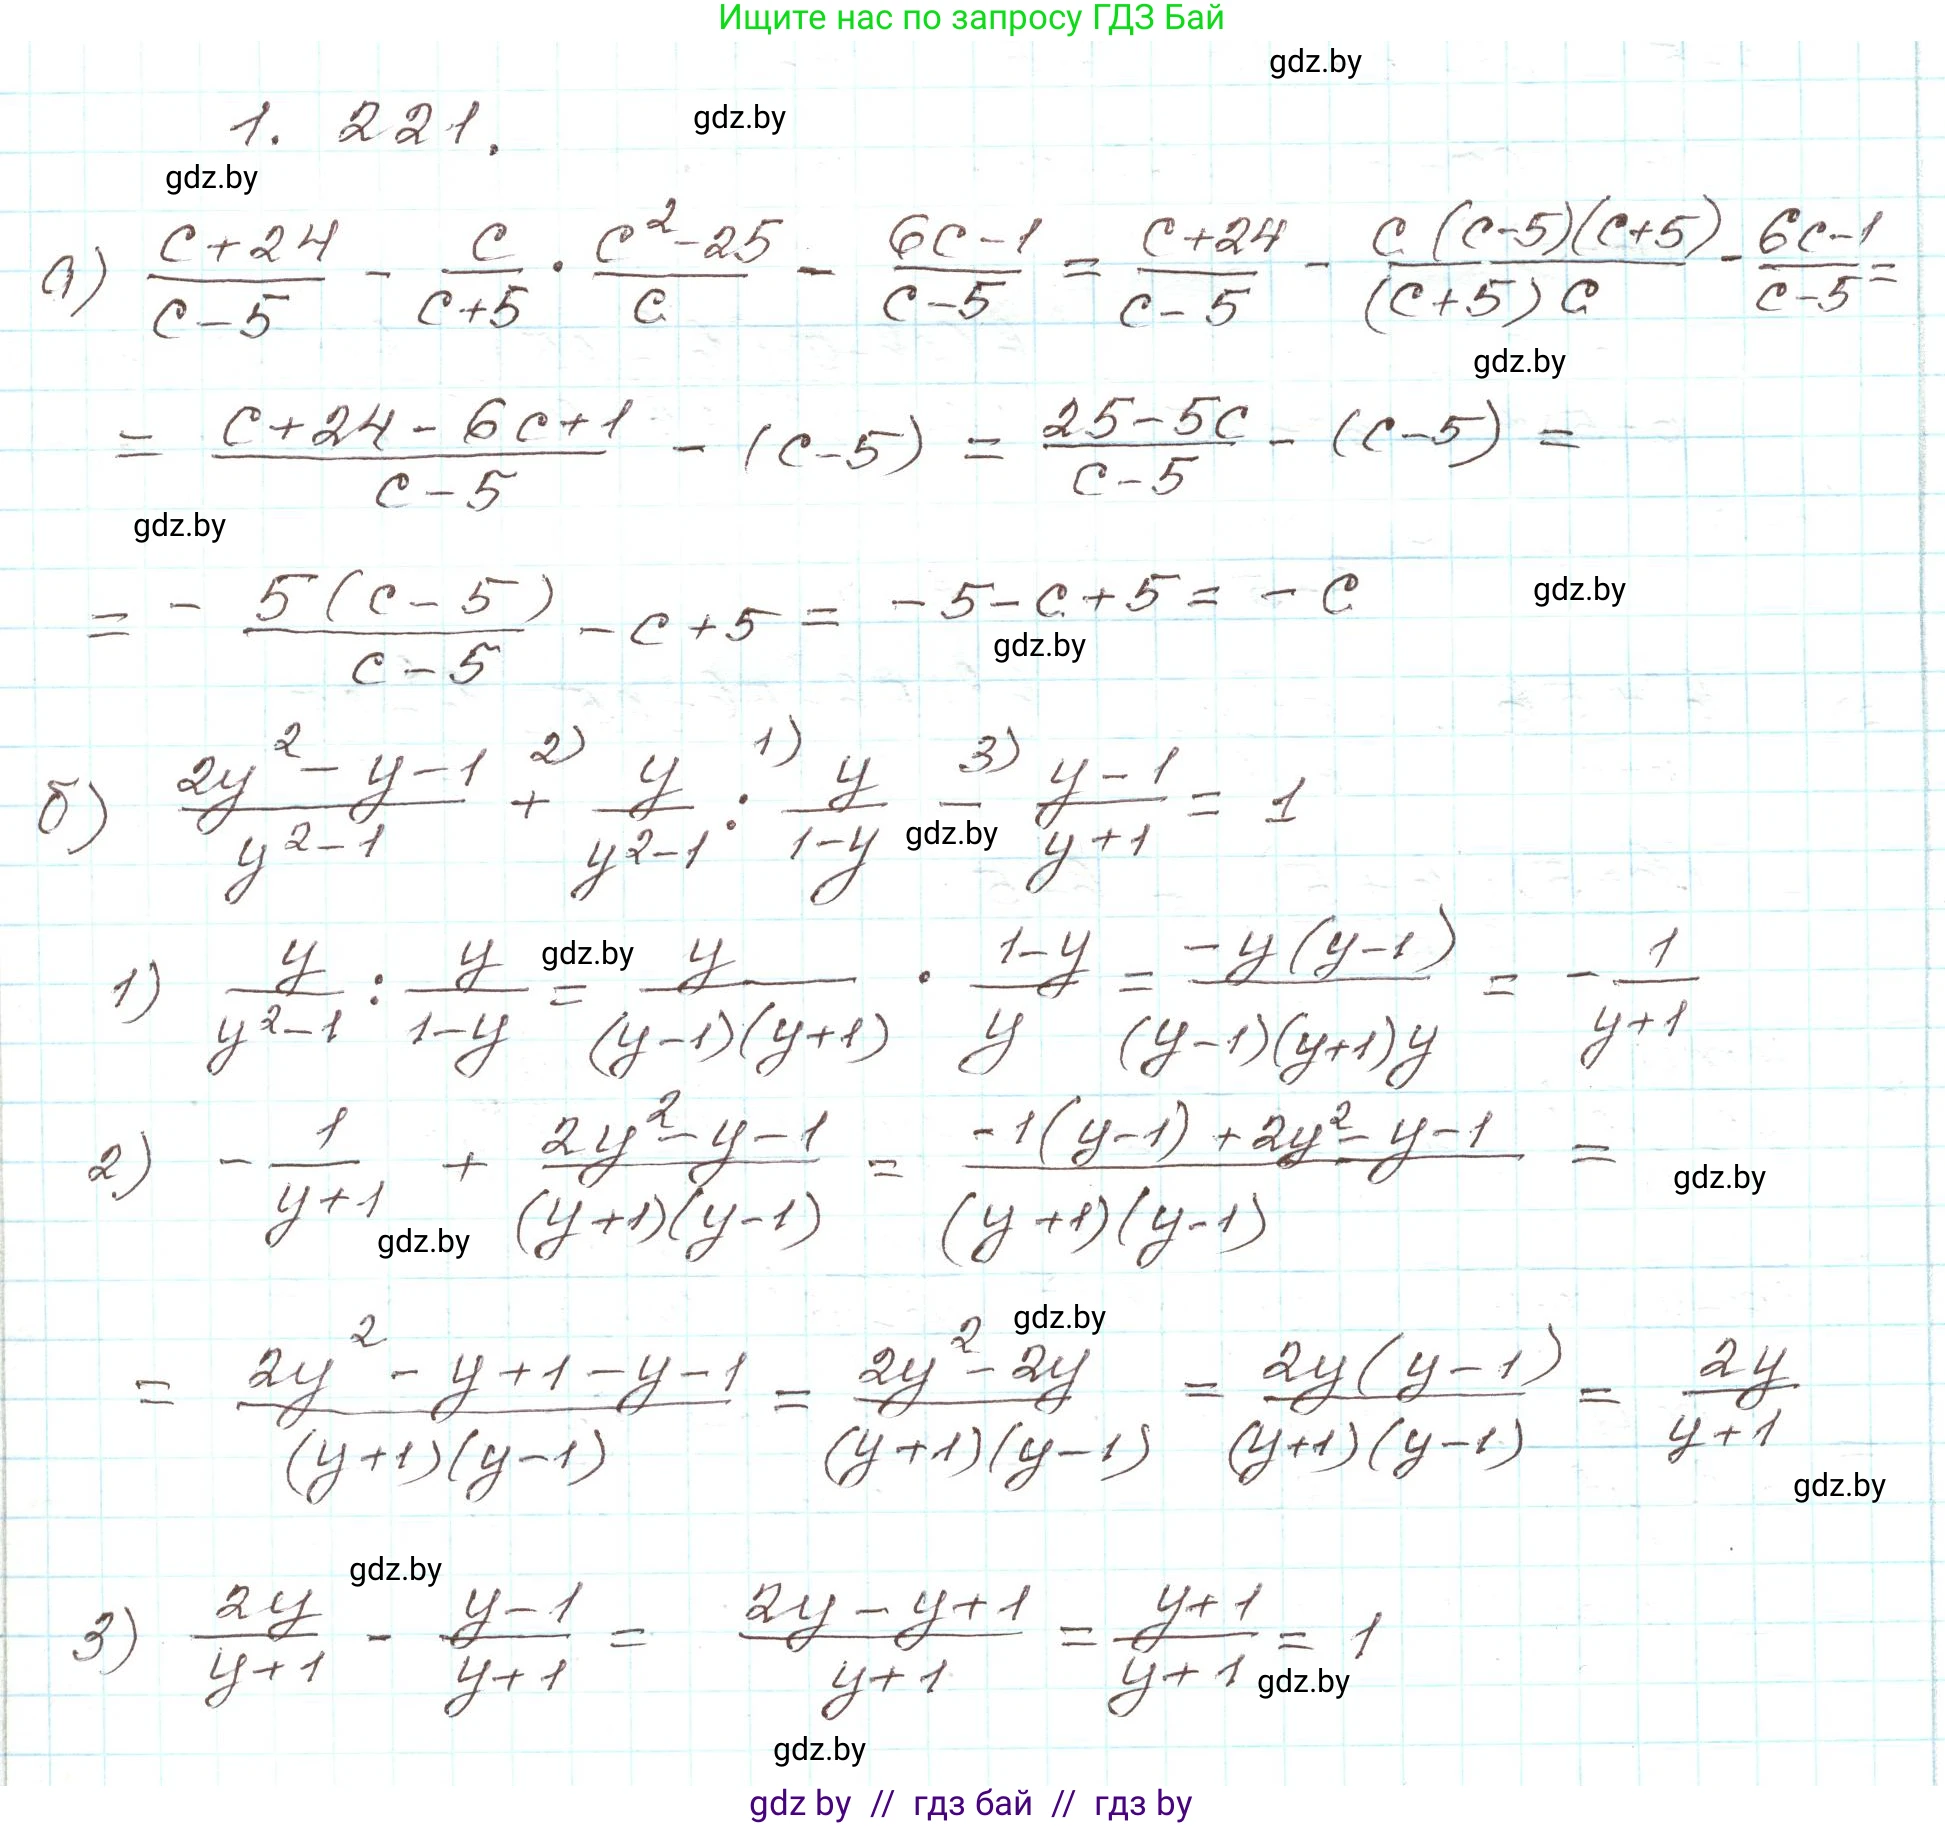 Ищите нас по запросу ГДЗ Бай
gdz.by
1. 221.
gdz.by
gdz.by
а) (c+24)/(c-5) - c/(c+5) · (c²-25)/c - (6c-1)/(c-5) = (c+24)/(c-5) - (c(c-5)(c+5))/((c+5)c) - (6c-1)/(c-5) =
gdz.by
= (c+24-6c+1)/(c-5) - (c-5) = (25-5c)/(c-5) - (c-5) =
gdz.by
= - (5(c-5))/(c-5) - c+5 = -5-c+5 = -c
gdz.by
gdz.by
б) (2y²-y-1)/(y²-1) 2) + y/(y²-1) 1) : y/(1-y) 3) - (y-1)/(y+1) = 1
gdz.by
1) y/(y²-1) : y/(1-y) = y/((y-1)(y+1)) · (1-y)/y = (-y(y-1))/((y-1)(y+1)y) = - 1/(y+1)
gdz.by
2) - 1/(y+1) + (2y²-y-1)/((y+1)(y-1)) = (-1(y-1)+2y²-y-1)/((y+1)(y-1)) =
gdz.by
gdz.by
gdz.by
= (2y²-y+1-y-1)/((y+1)(y-1)) = (2y²-2y)/((y+1)(y-1)) = (2y(y-1))/((y+1)(y-1)) = 2y/(y+1)
gdz.by
gdz.by
3) 2y/(y+1) - (y-1)/(y+1) = (2y-y+1)/(y+1) = (y+1)/(y+1) = 1
gdz.by
gdz.by
gdz by // гдз бай // гдз by